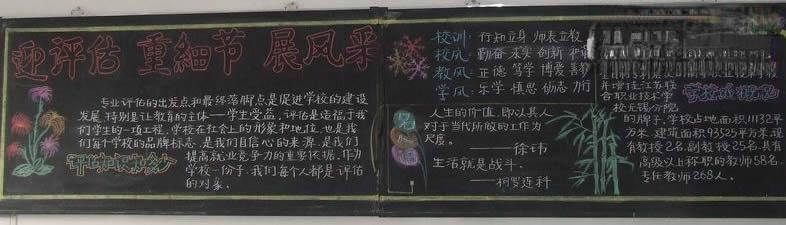 迎评估 重細节 展风采
专业评估的出发点和最终落脚点是促进学校的建设
发展,特别是让教育的主体——学生受益,评估是造福于我
们学生的一项工程,学校在社会上的形象和地位,也是我
们每个学校的品牌标志,是我们自信心的来源,是我们
提高就业竞争力的重要依据,作为
学校一份子,我们每个人都是评估
的对象。
校训:行知立身 师表立教
校风:勤奋 求实 创新 和谐
教风:正德 笃学 博爱 善教
学风:乐学 慎思 励志 力行
人生的价值,即以其人
对于当代所做的工作为
尺度。
——徐玮
生活就是战斗。
——柯罗连科
并增挂江苏联
合职业技术学
院无锡分院
学校规模概况
的牌子,学校占地面积11132平
方米,建筑面积93525平方米,现
有教授2名,副教授25名,具有
高级以上称职的教师58名,
专任教师268人。